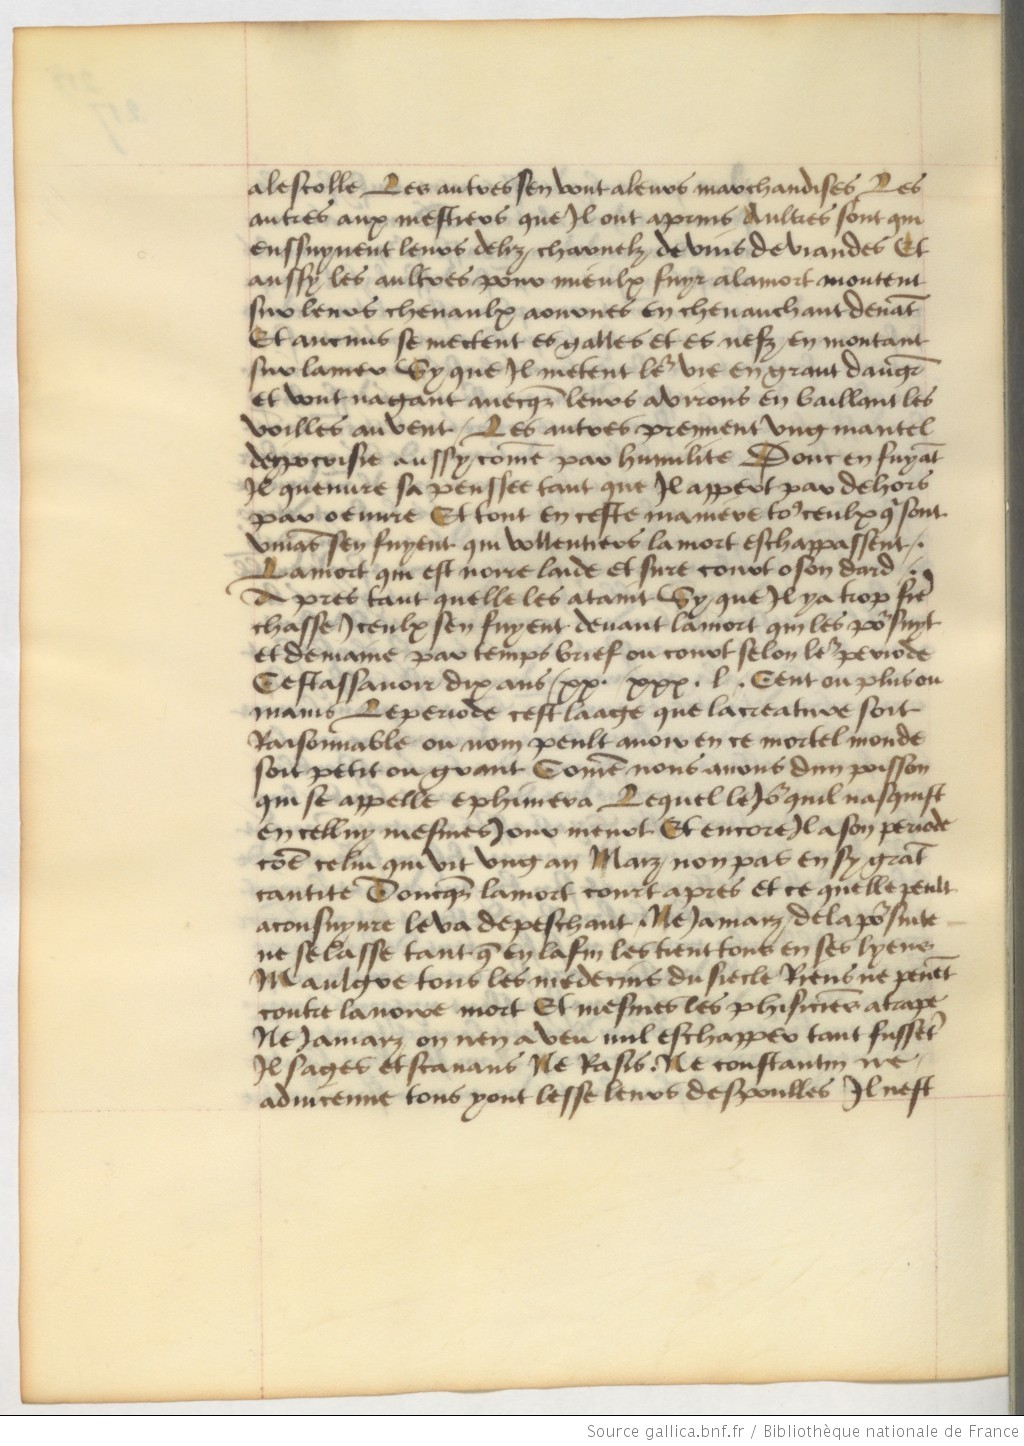 alescolle Les autres sen vont aleurs marchandises Les
autres aux mestiers que Il ont aprins Aultres sont qui
enssuyuent leurs deliz charnelz de vins de viandes Et
aussy les aultres pour mieulx fuyr alamort montent
sur leurs cheuaulx aournes en cheuauchant deuāt
Et aucuns se mectent es gallees et es nefz en montant
sur lamer Sy que Il metent leʳ vie en grant daūgʳ
et vont nagant auecqʒ leurs avirons en baillant les
voilles au vent / Les autres prennent vng mantel
dezpocrisie aussy comē par humilite Donc en fuyāt
Il queuure sa penssee tant que Il appert par dehors
par oeuure Et tout en ceste maniere toꝰ ceulx qͥ sont
viuās sen fuyent qui vollentiers lamort eschappassent /.
Lamort qui est noire laide et sure court o son dard
Apres tant quelle les ataint Sy que Il ya trop fierᵉ
chasse Iceulx sen fuyent deuant lamort qui les poʳsuyt
et demaine par temps brief ou court selon leʳ periode
Cest assauoir dix ans / xx. xxx. l. Cent ou plus ou
mains Le periode cest laage que la creature soit
Raisonnable ou nom peult auoir en ce mortel monde
soit petit ou grant Comē nous auons dun poisson
qui se appelle ephimera Lequel le Joʳ quil nasquist
en celluy mesmes Jour meurt Et encore Il a son periode
cōe celui qui vit vng an Maiz non pas en sy grāt
cantite Doncqʒ lamort court apres et ce quelle peult
aconsuyure leva depeschant Ne Jamaiz de la poʳsuite
ne se lasse tant qͣ en lafin les tient tous en ses lyens
Maulgre tous les medecins du siecle Riens ne peuēt
contre lanoire mort Et mesmes les phisiciēs atrape
Ne Jamaiz on nen a veu nul eschapper tant fussetᵗ
Il sages et scauans Ne Rasis. Ne constantin ne
aduicenne tous y ont lesse leurs despoulles Il nest
Source gallica.bnf.fr / Bibliothèque nationale de France